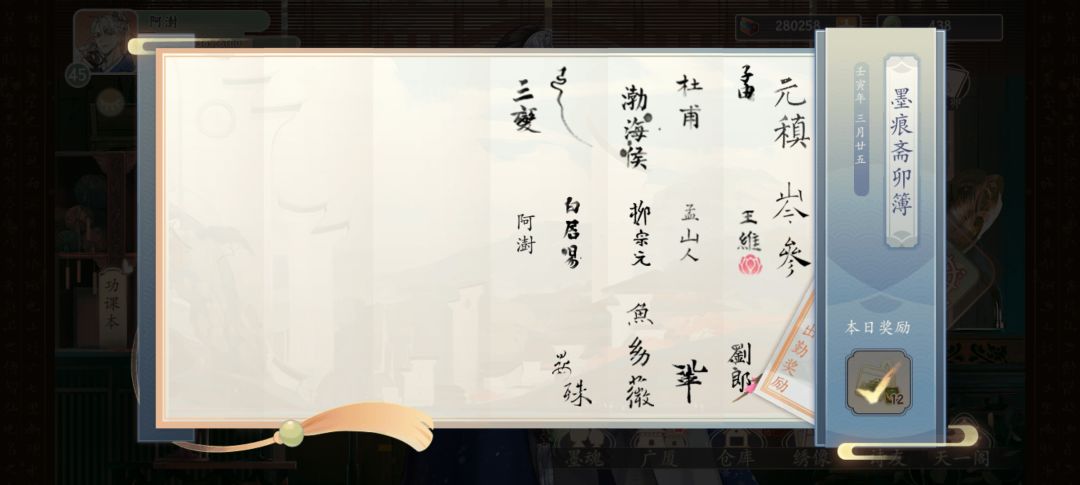 阿澍
45
280258
438
墨痕斋卯簿
壬寅年 三月廿五
本日奖励
12
出勤奖励
元稹
岑參
王維
劉郎
杜甫
孟山人
鞏
渤海侯
柳宗元
魚幼薇
白居易
三變
阿澍
功课本
墨魂
广厦
仓库
绣像
诗友
天一阁